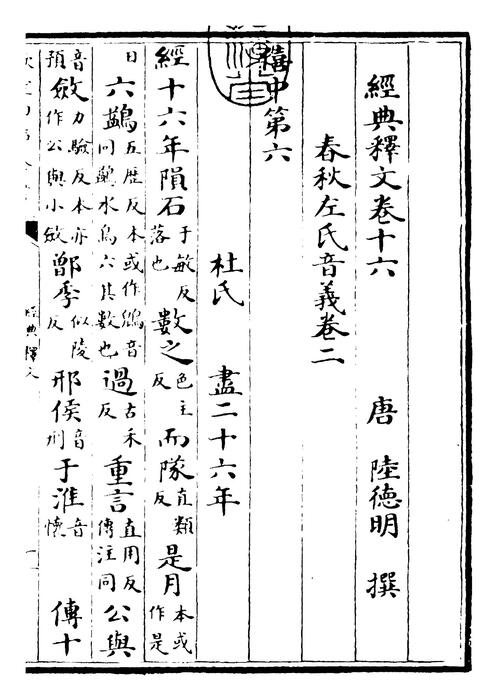 經典釋文卷十六　唐　陸德明　撰
春秋左氏音義卷二
僖中第六
杜氏　盡二十六年
經十六年隕石于敏反落也數之色主反而隊直類反是月本或作是
日六鷁五歷反本或作鶂音同鷁水鳥六其數也過古禾反重言直用反傳注同公與
音預斂力驗反本亦作公與小斂鄫季似陵反邢侯音刑于淮音懷傳十
經典釋文